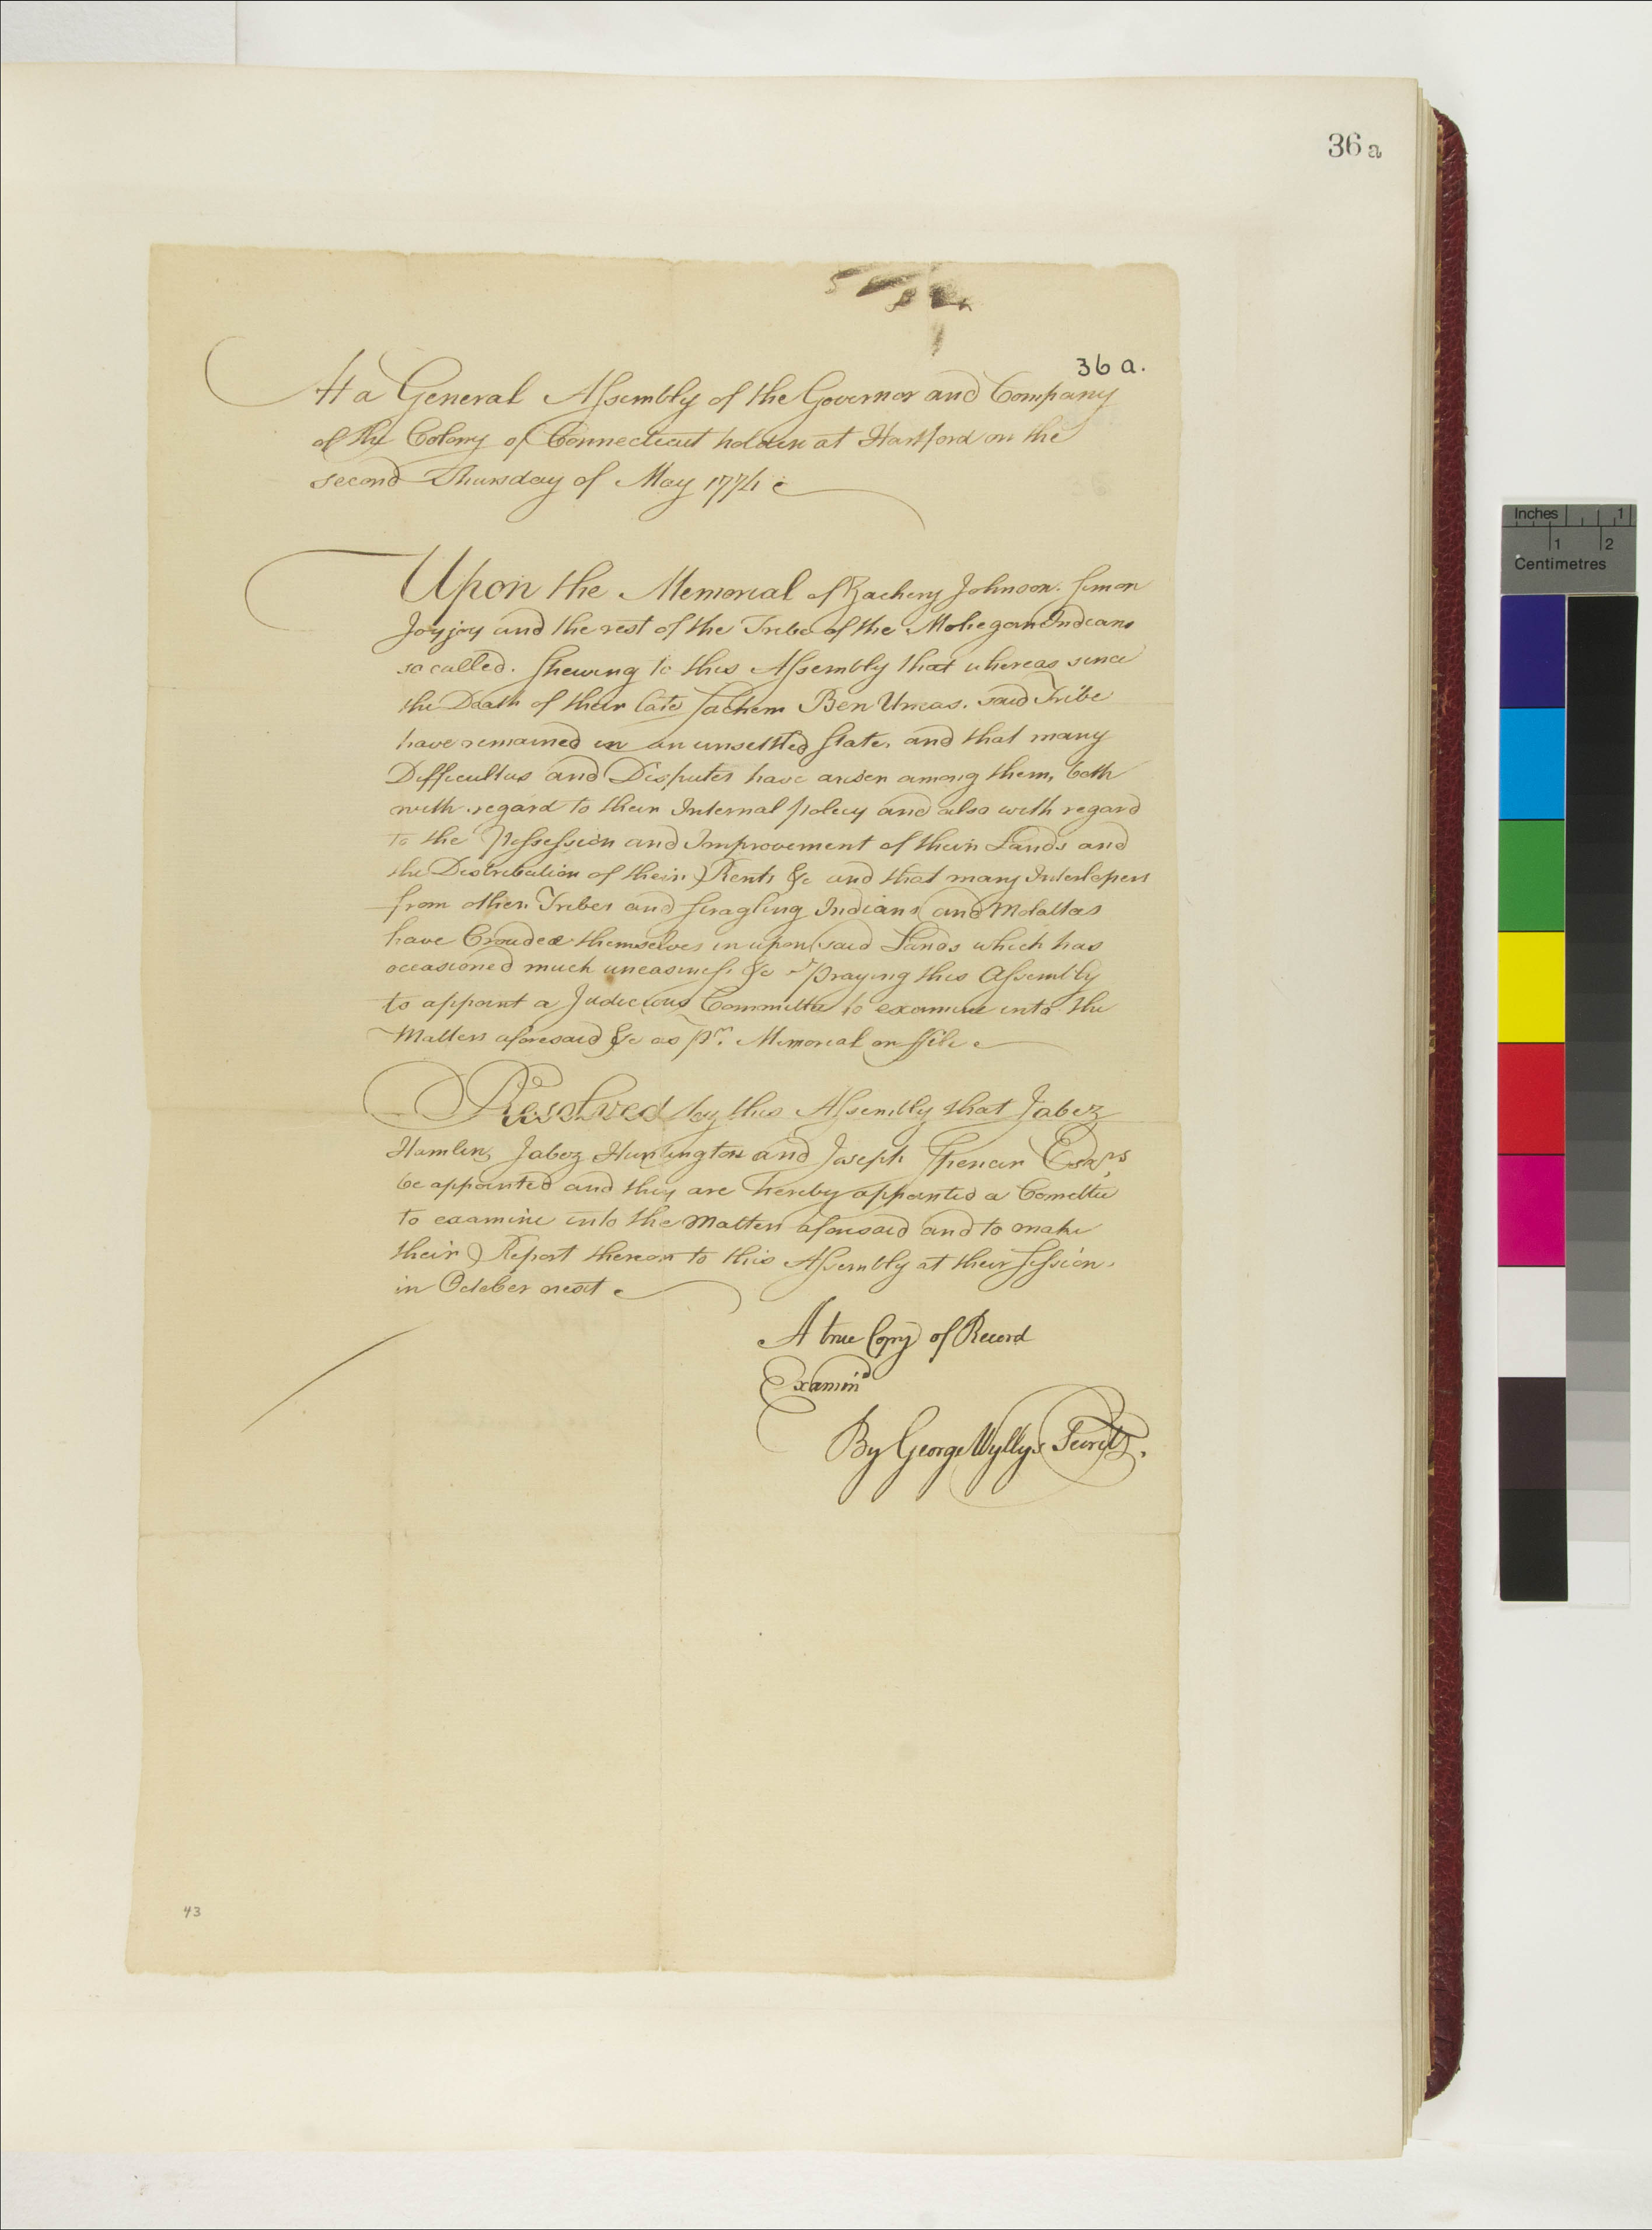 36 a
36 a.
At a General Assembly of the Governor and Company
of the Colony of Connecticut holden at Hartford on the
second Thursday of May 1774
Upon the Memorial of Zachery Johnson. Simon
Joyjoy and the rest of the Tribe of the Mohegan Indians
so called. Shewing to this Assembly that whereas since
the Death of their late Sachem Ben Uncas. said Tribe
have remained in an unsettled State, and that many
Difficultys and Disputes have arisen among them, both
with regard to their Internal policy and also with regard
to the Possession and Improvement of their Lands and
the Distribution of their Rents &c and that many Interlopers
from other Tribes and stragling Indians and Molattas
have Crouded themselves in upon said Lands which has
occasioned much uneasiness &c Praying this Assembly
to appoint a Judicious Committee to examine into the
Matters aforesaid &c as pr. Memorial on file
Resolved by this Assembly that Jabez
Hamlin, Jabez Huntington and Joseph Spencer Esqrs
be appointed and they are hereby appointed a Comettee
to examine into the Matters aforesaid and to make
their Report thereon to this Assembly at their Session.
in October next
A true Copy of Record
Examind
By George Wyllys Secrety.
43
Inches 1
1 2
Centimetres